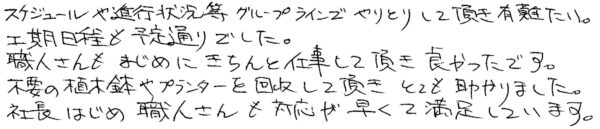 スケジュールや進行状況等グループラインでやりとりして頂き有難たい。
工期日程も予定通りでした。
職人さんもまじめにきちんと仕事して頂き良かったです。
不要の植木鉢やプランターを回収して頂きとても助かりました。
社長はじめ職人さんも対応が早くて満足しています。